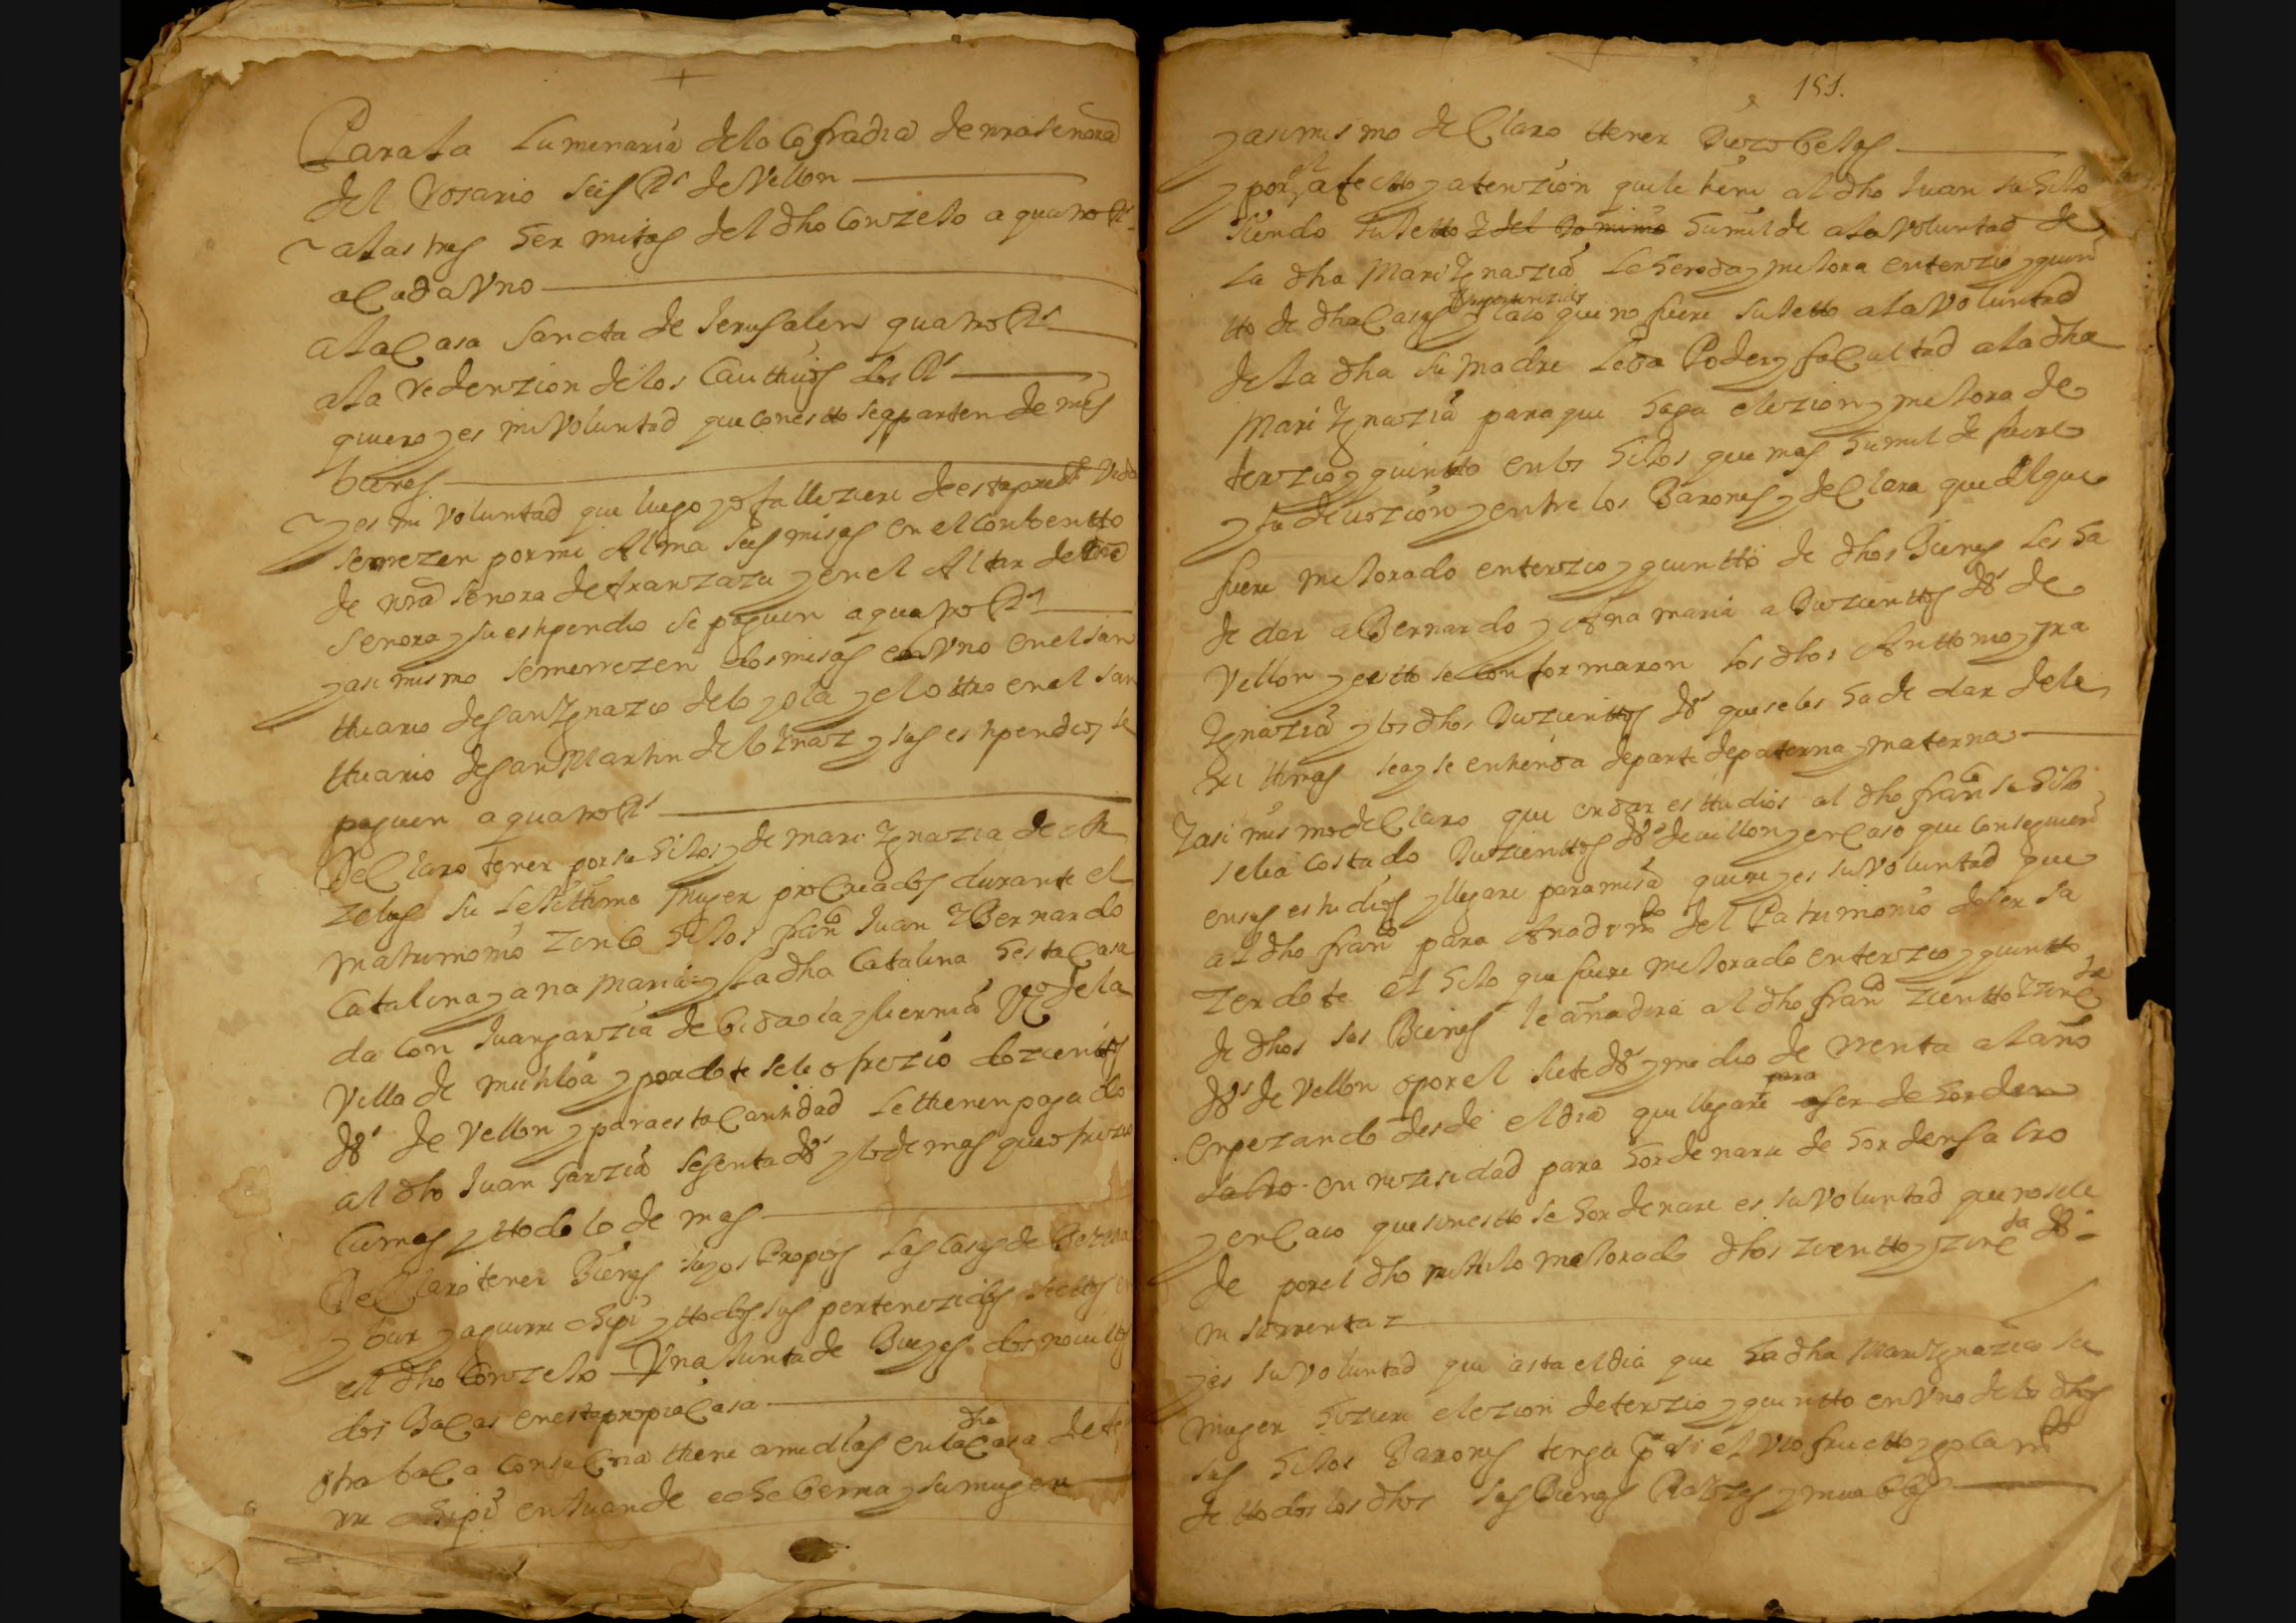 Para la Lumenaria de la Cofradia de nra señora
del Rosario seis Rs de Vellon
a las tres Hermitas del dho Conzejo a quatro Rs
a cada Vno
a la Casa Sancta de Jerusalem quatro Rs
a la redenzion de los Cauthiuos dos Rs
quiero y es mi Voluntad que con esto se apparten de mis
bienes
y es mi Voluntad que luego yo falleziere de esta presste Vida
se rrezen por mi Alma seis misas en el Conbentto
de nra señora de Aranzazu y en el Altar de nra
Senora y su estipendio se paguen a quatro Rs
y asi mismo se me rrezen dos misas el Vno en el san
ttuario de san Ygnazio de loyola y el ottro en el san
ttuario de san Martin de loynaz y sus estipendios se
paguen a quatro Rs
DeClaro tener por su hijos y de Mari Ygnazia de
zelus su Lejittima Muger proCreados durante el
matrimonio zinco hijos franco Juan Y Bernardo
Catalina y ana Maria y la dha Catalina esta Casa
da Con Juan garzia de bidaola y lierniа Vo de la
Villa de Muthiloa y por dote se le ofrezio dozientos
ds de Vellon y para esta Cantidad Le ttienen pagado
al dho Juan Garzia sesenta ds y lo demas que ofrezio
Camas y ttodo lo de mas
DeClaro tener Bienes suyos Propios Las Casas de
y bar y aguirre chipi y ttodos sus pertenezidos
el dho Conzejo Vna Junta de Bueyes dos nouillos
dos Bacas en esta propia Casa
Otra baCa Con su Cria ttiene a medias en la dha Casa de
rre chipi en Juan de echeberria y su muger
151.
y asi mis mo deClaro ttener Diezobejas
y por el afectto y atenzion que le tiene al dho Juan su hijo
siendo sujetto Y del Domino humilde a la Voluntad de
La dha Mari Ygnazia Le Hereda y mejora en terzio y quin
tto de dhas Casas y pertenezidos y Caso que no fuere sujetto a la Voluntad
de la dha su Madre Le da Poder y faCultad a la dha
Mari Ygnazia para que haga elezion y mejora de
terzio y quintto en los hijos que mas humilde fuere
y su deuozion y entre los Barones y deClara que el que
fuere mejorado en terzio y quintto de dhos Bienes les ha
de dar a Bernardo y Ana maria a Duzienttos ds de
Vellon y en etto se Conformaron los dhos Anttonio y Ma
Ygnazia y los dhos Duzienttos ds que se les ha de dar de le
xittimas sea y se entienda de parte de paterna y materna
Y asi mismo deClaro que en dar esttudios al dho franco su hijo
se le a Costado Duzienttos ds de vellon y en Caso que Consiguiere
en sus estudios y llegare para misa quiere y es su Voluntad que
al dho franco para Anadimto del Patrimonio de ser Sa
zerdote el hijo que fuere mejorado en terzio y quintto
de dhos sus Bienes le añadira al dho franco zientto Y zinCta
ds de Vellon o por el siete ds y medio de rrenta al año
enpezando desde el dia que llegare para a ser de horden
sacro en nezesidad para hordenarse de horden sacro
y en Caso que sin estto se hordenare es su Voluntad que no se le
de por el dho su hijo mejorado dhos zientto y zinCta ds
ni su rrenta
y es su Voluntad que asta el dia que La dha Mari Ygnazia su
muger hiziere elezion de terzio y quintto en Vno de los dhos
sus hijos Barones tenga pa si el Vso fructto y gozamto
de ttodos los dhos sus Bienes Raizes y muebles